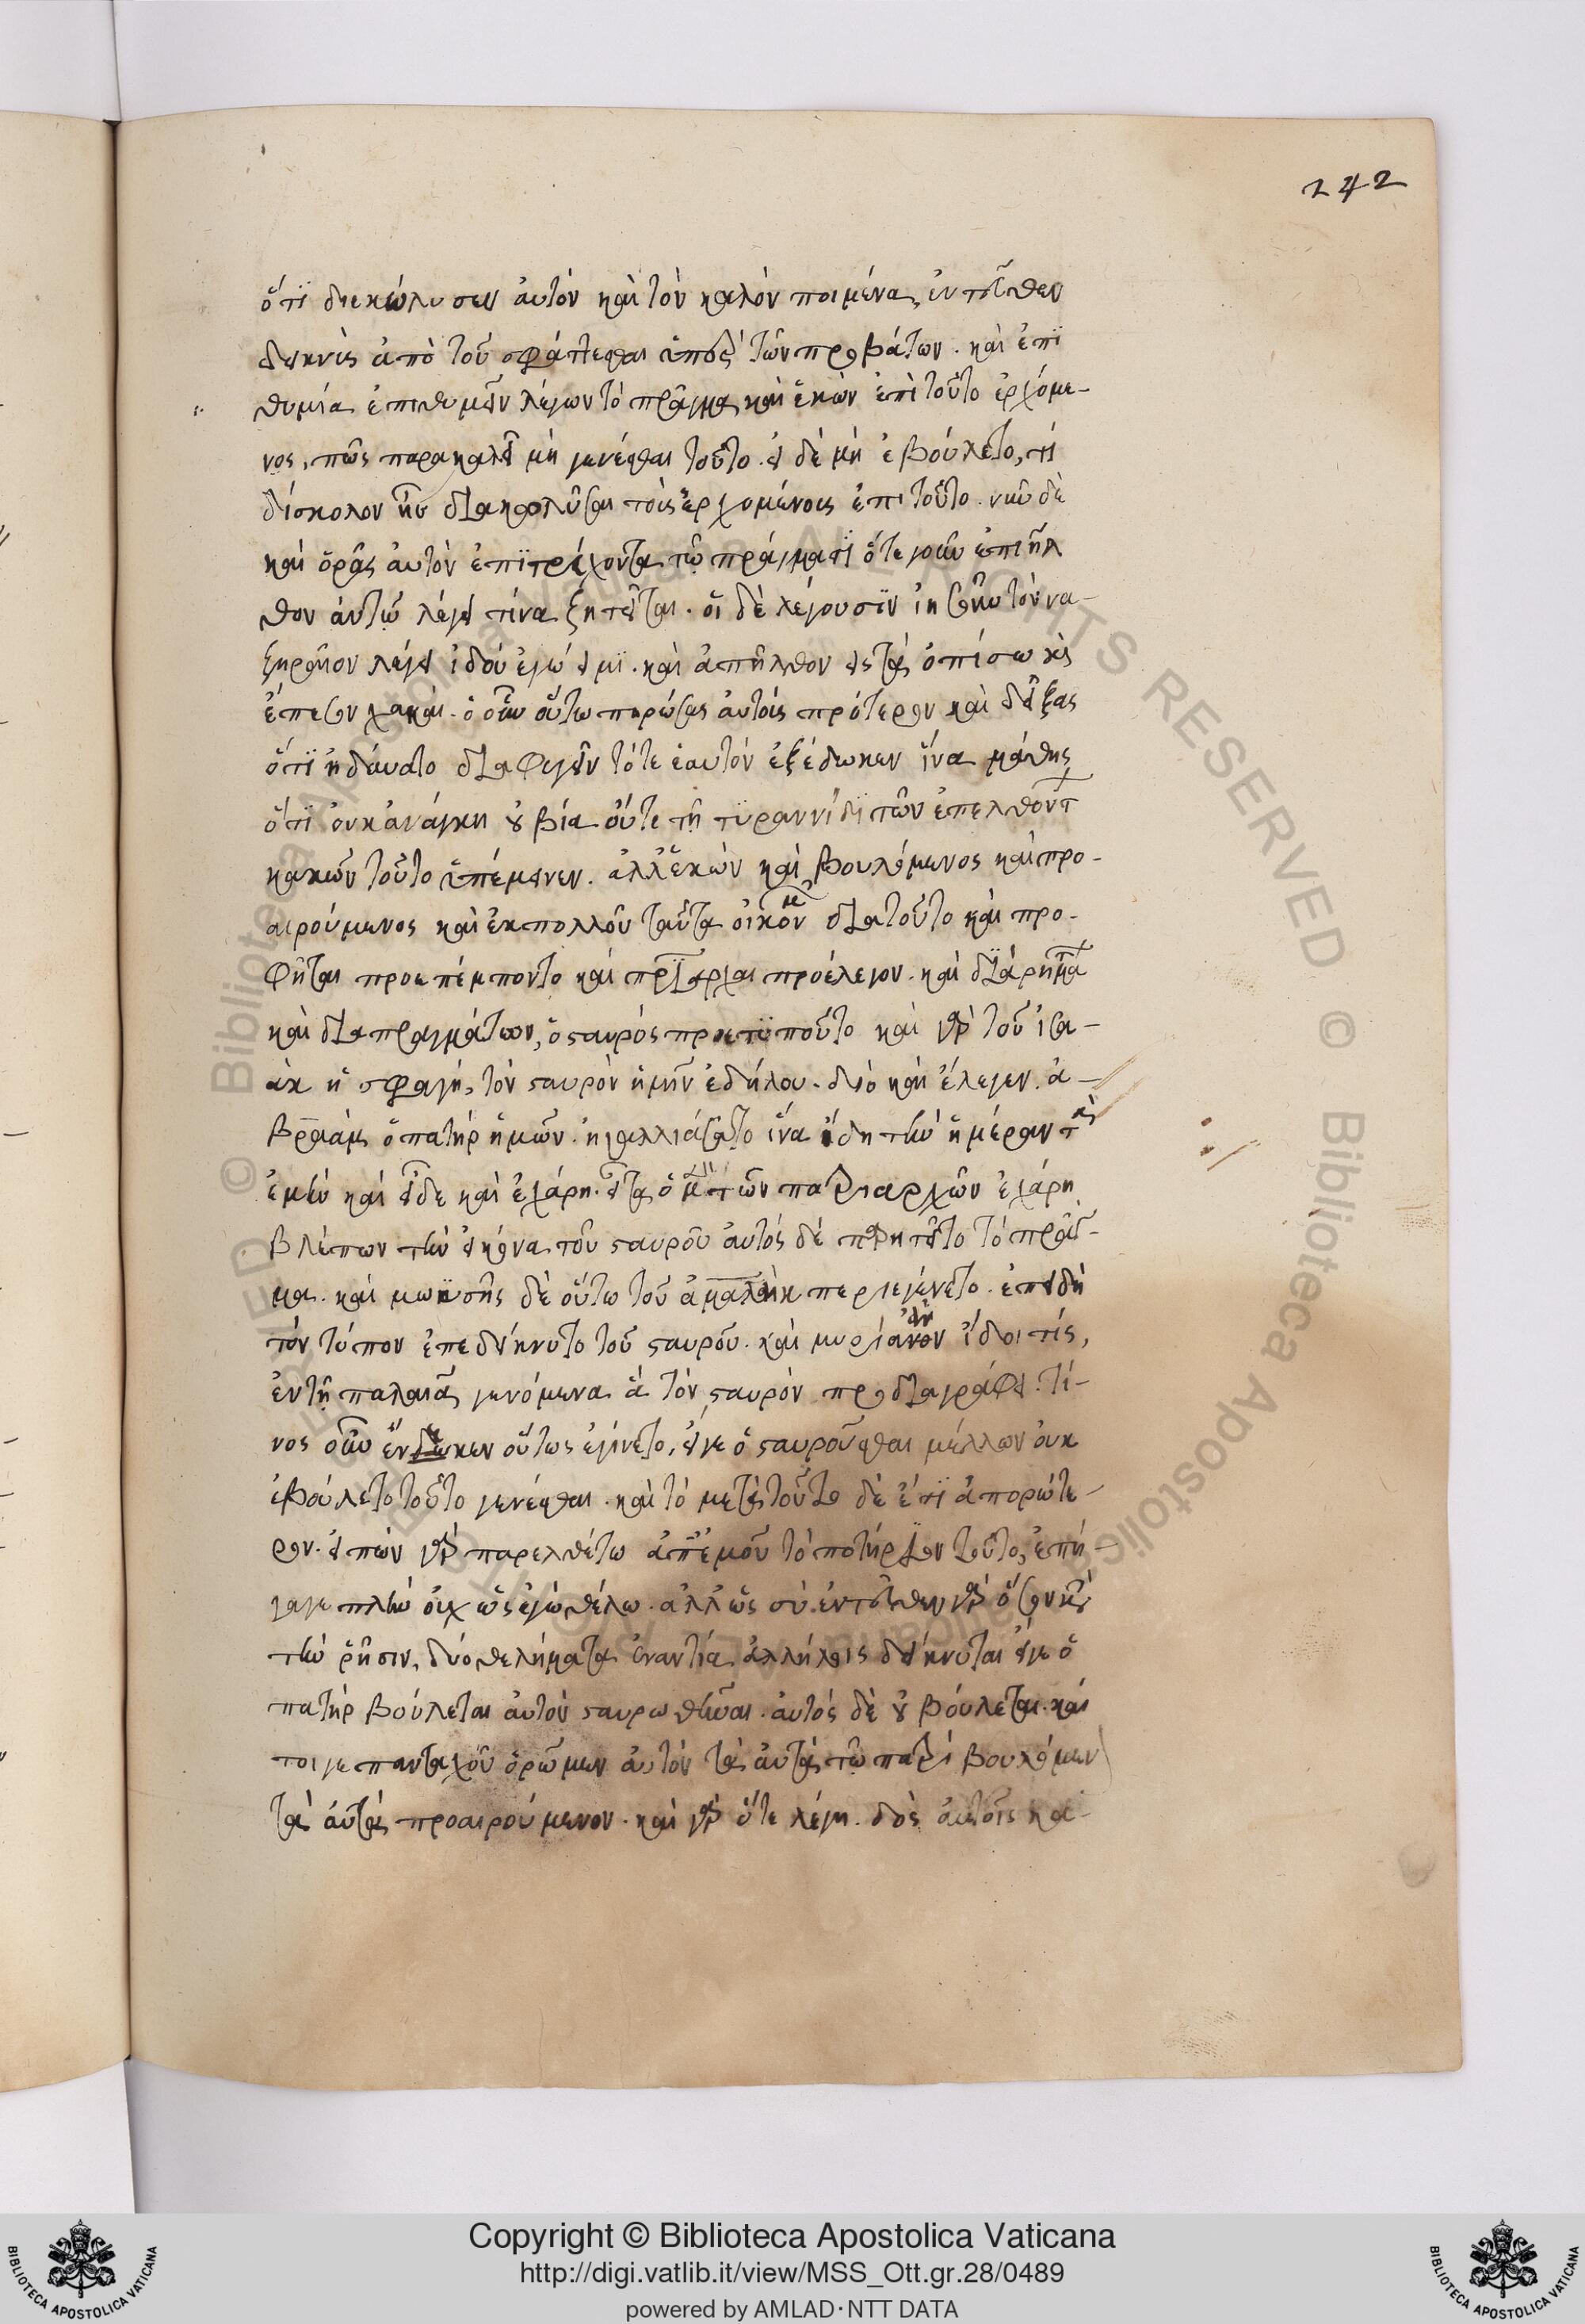 242
ὅτϊ διεκώλυσεν ἀυτὸν καὶ τὸν καλὸν ποιμένα, ἐντεῦθεν
δεικνὺς ἀπὸ τοῦ σφάττεσθαι ὑπὲρ τῶν προβάτων. καὶ ἐπϊ
θυμία ἐπιθυμεῖν λέγων τὸ πρᾶγμα, καὶ ἑκὼν ἐπὶ τοῦτο ἐρχόμε-
νος, πῶς παρακαλεῖ μὴ γενέσθαι τοῦτο. εἰ δὲ μὴ ἐβούλετο, τί
δύσκολον ἦν διακωλῦσαι τοὺς ἐρχομένους ἐπι τοῦτο. νῦν δὲ
καὶ ὁρᾶς ἀυτὸν ἐπϊτρέχοντα τῶ πράγματϊ ὅτε γοῦν ἐπῆλ
θον ἀυτῶ λέγει τίνα ζητεῖται. οἱ δὲ λέγουσϊν ἰησοῦν τὸν να-
ζηραῖον λέγει ἰδοὺ ἐγώ εἰμϊ. καὶ ἀπῆλθον εἰς τὰ ὀπίσω καὶ
ἔπεσον χαμαί. ὁ οὖν οὕτω πηρώσας ἀυτοὺς πρότερον καὶ δείξας
ὅτϊ ἠδύνατο διαφυγεῖν τότε ἑαυτὸν ἐξέδωκεν ἵνα μάθης
ὅτϊ ὀυκ ἀνάγκη οὐ βία οὔτε τῆ τϋραννίδϊ τῶν ἐπελθόντ
κακῶν τοῦτο ὑπέμεινεν. ἀλλ' ἑκὼν καὶ βουλόμενος καὶ προ-
αιρούμενος καὶ ἐκ πολλοῦ ταῦτα οἰκον διατοῦτο καὶ προ-
φῆται προεπέμποντο καὶ πριάρχαι προέλεγον. καὶ διὰ ρημά
καὶ διαπραγμάτων, ὁ σταυρὸς προετϋποῦτο καὶ γὰρ τοῦ ἰσα-
ὰκ ἡ σφαγὴ, τὸν σταυρὸν ἡμῖν ἐδήλου. διὸ καὶ ἔλεγεν. ἀ-
βραὰμ ὁ πατὴρ ἡμῶν. ἠγαλλιάσατο ἵνα ἴδη τὴν ἡμέραν τὴν
ἐμὴν καὶ εἶδε καὶ ἐχάρη. εἶτα ὁ μὲν τῶν πατριαρχῶν ἐχάρη
βλέπων τὴν εἰκόνα τοῦ σταυροῦ ἀυτὸς δὲ παρητεῖτο τὸ πρᾶγ-
μα. καὶ μωϋσῆς δὲ οὕτω τοῦ ἀμαλὴκ περιεγένετο. ἐπειδὴ
τὸν τύπον ἐπεδείκνυτο τοῦ σταυροῦ. καὶ μυρία ἂν ἴδοι τίς,
ἐν τῆ παλαιᾶ, γενόμενα ἃ τὸν σταυρὸν προδιαγράφει. τί-
νος οὖν ἕνεκεν οὕτως ἐγίνετο, εἴγε ὁ σταυροῦσθαι μέλλων ὀυκ
ἐβούλετο τοῦτο γενέσθαι. καὶ τὸ μετὰ τοῦτο δὲ ἔτϊ ἀπορώτε-
ρον. εἰπὼν γὰρ παρελθέτω ἀπ' ἐμοῦ τὸ ποτήριον τοῦτο, ἐπή-
γαγε πλὴν ὀυχ ὡς ἐγὼ θέλω. ἀλλ' ὡς σὺ. ἐντεῦθεν γὰρ ὅσον κατὰ
τὴν ῥῆσιν, δύο θελήματα ἐναντία ἀλλήλοις δείκνυται εἴγε ὁ
πατὴρ βούλεται ἀυτὸν σταυρωθῆναι. ἀυτὸς δὲ οὐ βούλεται. καί
τοιγε πανταχοῦ ὁρῶμεν ἀυτὸν τὰ ἀυτὰ τῶ πατρὶ βουλόμεν
τὰ ἀυτὰ προαιρούμενον. καὶ γὰρ ὅτε λέγη. δὸς ἀυτοῖς κα-
Copyright © Biblioteca Apostolica Vaticana
http://digi.vatlib.it/view/MSS_Ott.gr.28/0489
powered by AMLAD·NTT DATA